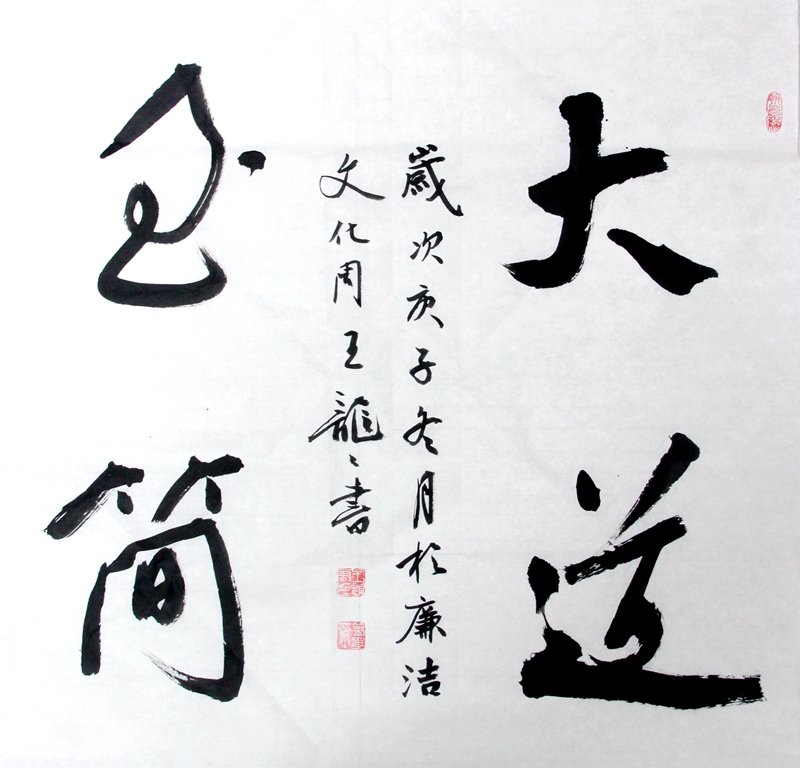 大道
至简
歲次庚子冬月於廉洁
文化周王龍〻書